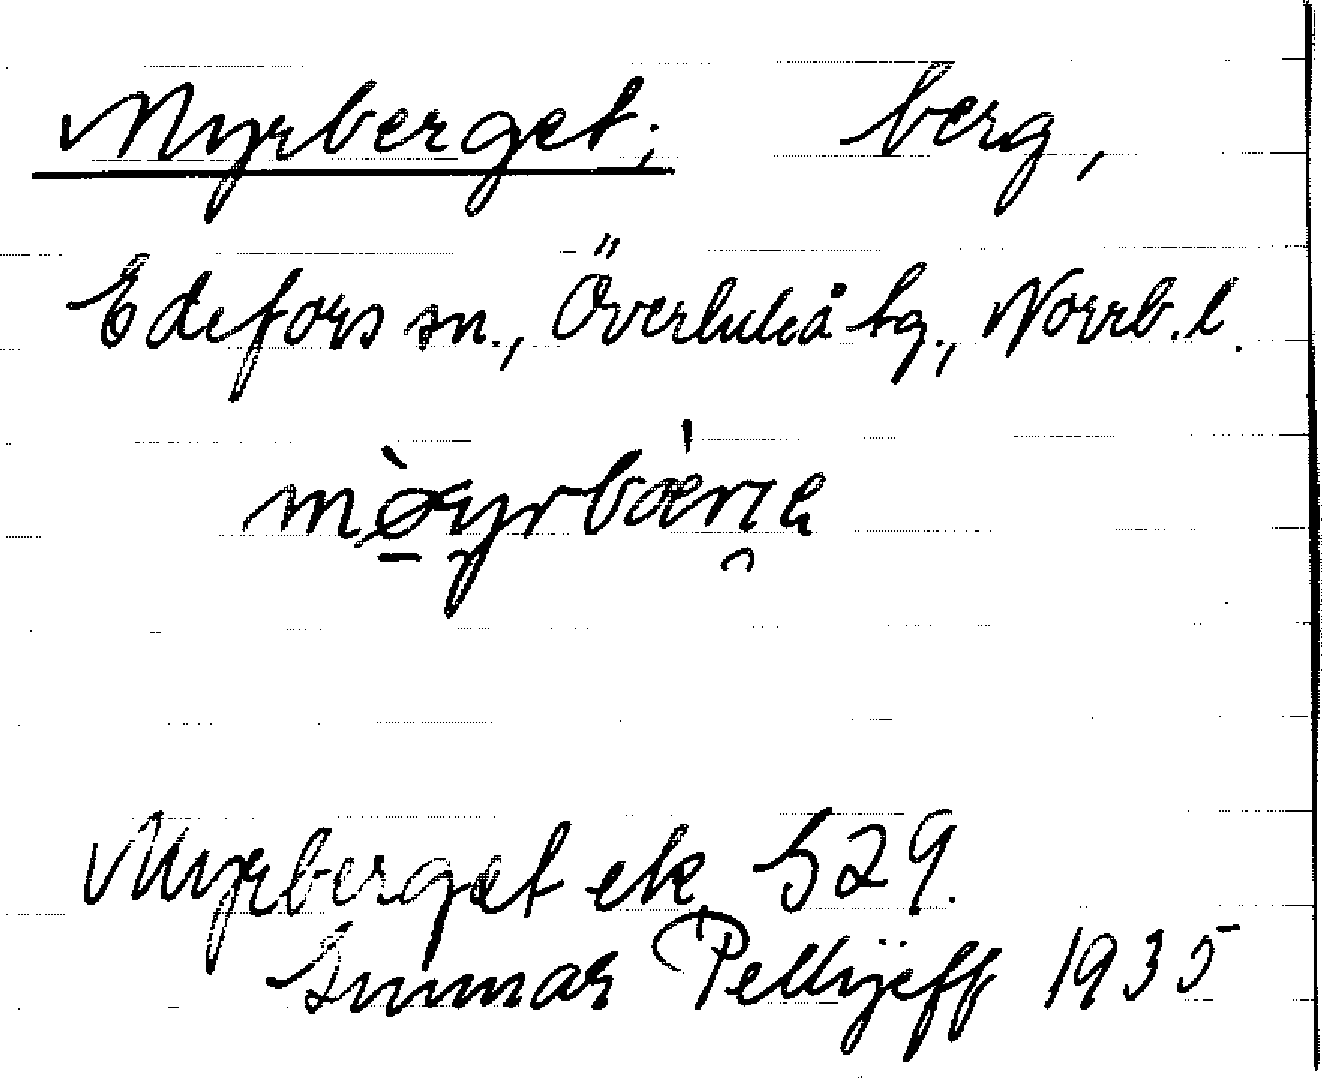 Myrberget; berg,
Edefors sn., Överluleå tg., Norrb. l.
Myrberget ek S29.
Gunnar Pellijeff 1935